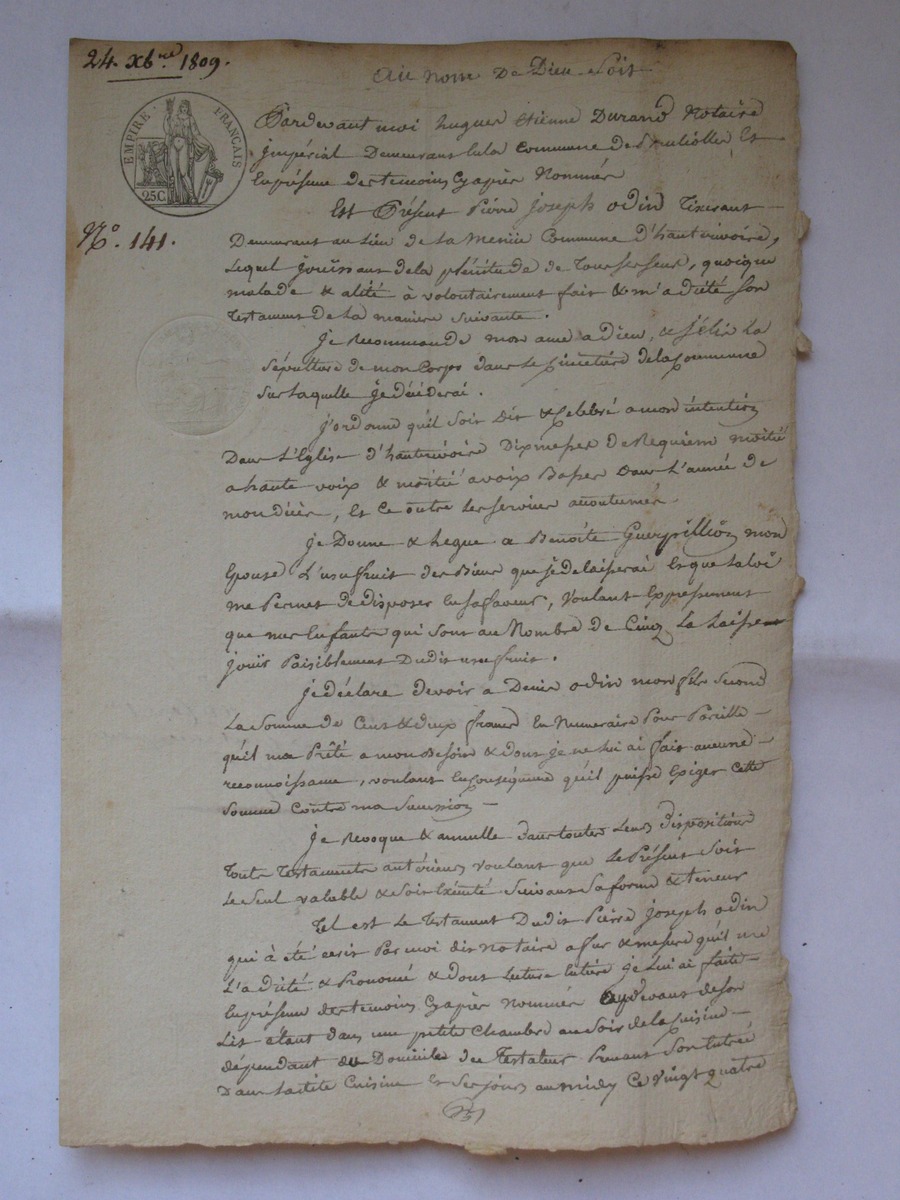 24. Xb.re 1809.
Au nom De Dieu soit
EMPIRE FRANÇAIS
25C
Pardevant moi hugues Etienne Durand Notaire
jmpérial Demeurant la Commune de Et
En présence des temoins Cyaprès Nommés
N.o 141.
Est Présent Pierre joseph odin Tixerant
Demeurant au Lieu de La Commune D'hauterivoire,
Lequel jouissant de la plénitude de Tous ses sens, quoique
malade & alité à volontairement fait & m'a dicté son
Testament De La maniere suivante.
je Recommande mon ame a Dieu, & j'élis La
sépulture de mon Corps dans Le Cimetière de la Commune
sur Laquelle je décéderai.
j'ordonne qu'il soit Dit & Celebré a mon intention
Dans L'Eglise d'hauterivoire Dix messes de Requiem moitié
a haute voix & moitié a voix Basse Dans L'année de
mon décès, Et Ce outre les services accoutumés.
je Donne & Legue a Benoite Guerpillion mon
Epouse L'usufruit des Biens que je delaisserai Et que La loi
me Permet de disposer En sa faveur, voulant Expressement
que mes Enfants qui sont au Nombre de Cinq La Laissent
jouir Paisiblement Dudit usufruit.
je déclare devoir a Denis odin mon fils second
La somme de Cent & deux francs En Numeraire Pour Pareille
qu'il ma Prêté a mon Besoin & dont je ne lui ai fait aucune
reconnoissance, voulant En Conséquence qu'il puisse Exiger Cette
somme Contre ma succession
je Revoque & annulle dans toutes Leurs dispositions
Touts Testaments antérieurs voulant que Le Présent soit
Le seul valable & soit Exécuté suivant sa forme & teneur
Tel est Le Testament Dudit Pierre joseph odin
qui à été ecrit Par moi dit Notaire a fur & mesure qu'il me
L'a dicté & Prononcé & dont Lecture Entière je Lui ai faite
En présence des temoins Cyaprès nommés audevant de son
Lit étant dans une petite Chambre au soir de la Cuisine
dépendant du Domicile du Testateur Prenant son Entrée
Dans La dite Cuisine Et ses jours au midy Ce vingt quatre